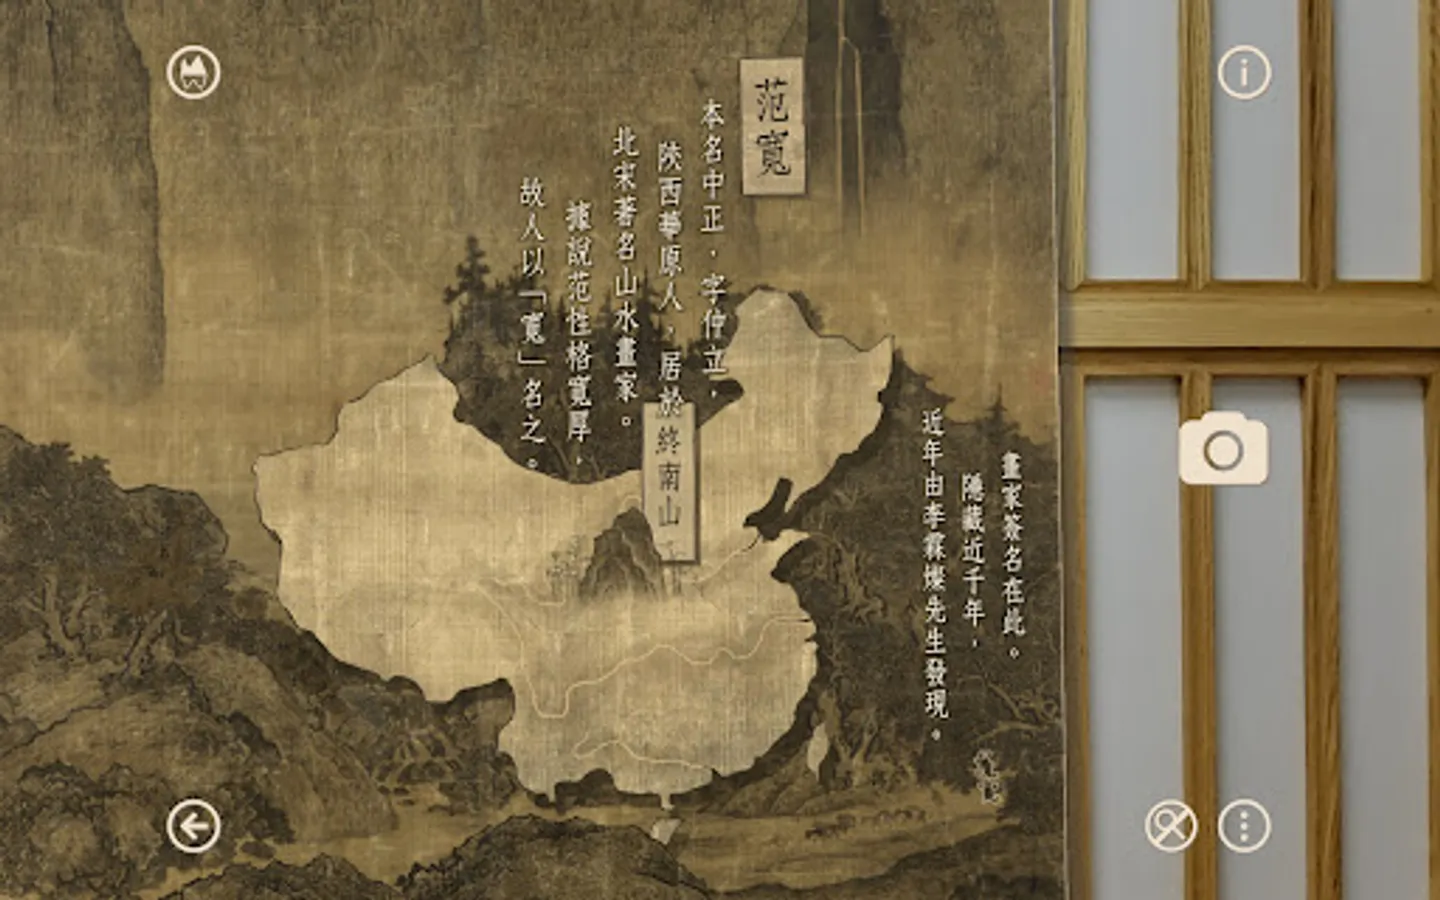 范寬
本名中正，字仲立，
陝西華原人，居於終南山
北宋著名山水畫家。
據說范性格寬厚，
故人以「寬」名之。
畫家簽名在此。
隱藏近千年，
近年由李霖燦先生發現。